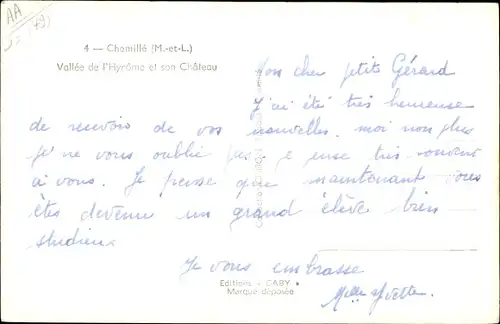 AA
4 — Chemillé (M.-et-L.)
Vallée de l'Hyrôme et son Château
Mon cher petits Gérard
J'ai été très heureuse
de recevoir de vos nouvelles. moi non plus
je ne vous oublié pas, je pense très souvent
à vous. Je pense que maintenant vous
êtes devenu un grand élève bien
studieux
Je vous embrasse
Editions « GABY »
Marque déposée
Melle Yvette.